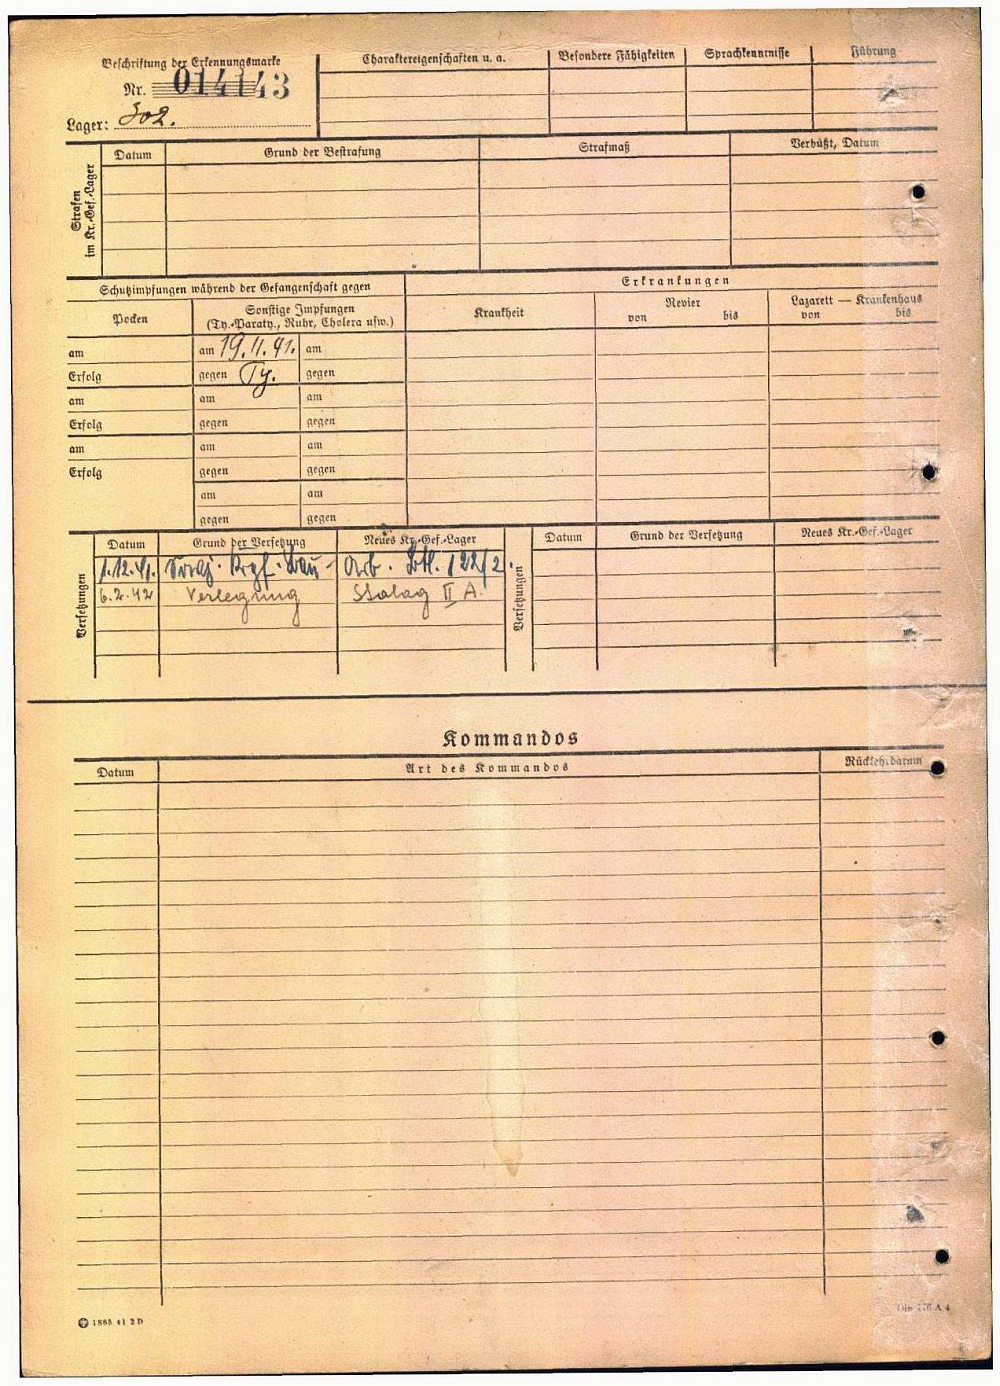 Beschriftung der Erkennungsmarke
Nr. 014143
Lager: 302.
Charaktereigenschaften u. a.
Besondere Fähigkeiten
Sprachkenntnisse
Führung
Strafen im Kr.-Gef.-Lager
Datum
Grund der Bestrafung
Strafmaß
Verbüßt, Datum
Schutzimpfungen während der Gefangenschaft gegen
Erkrankungen
Pocken
Sonstige Impfungen
(Ty.-Paraty., Ruhr, Cholera usw.)
Krankheit
Revier
von bis
Lazarett — Krankenhaus
von bis
am
am 19.11.41. am
Erfolg
gegen Ty. gegen
am
am am
Erfolg
gegen gegen
am
am am
Erfolg
gegen gegen
am am
gegen gegen
Versetzungen
Datum Grund der Versetzung Neues Kr.-Gef.-Lager
1.12.41. Krgf. Bau- Arb. Btl. 122/2.
6.2.42 Verlegung Stalag II A.
Versetzungen
Datum Grund der Versetzung Neues Kr.-Gef.-Lager
Kommandos
Datum Art des Kommandos Rückkehrdatum
1885 41 2 D
Din 476 A 4